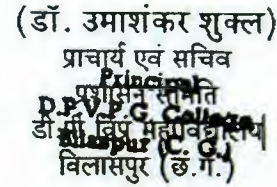 (डॉ. उमाशंकर शुक्ल)
प्राचार्य एवं सचिव
Principal
प्रशासन समिति
D.P.V.P.G. College
डी.पी. विप्र महाविद्यालय
Bilaspur (C.G.)
विलासपुर (छ.ग.)